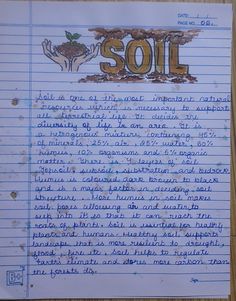 DATE: / /
PAGE NO.: 02
SOIL
Soil is one of the most important natural
resources which is necessary to support
all terrestrial life. It decides the
diversity of life in an area. It is
a hetrogenous mixture containing 45%
of minerals, 25% air, 25% water,
humus, 10% organisms and 5% organic
matter. There is 4 layers of soil
Topsoil, subsoil, substratum and bedrock
Humus is coloured dark brown to black
and is a major factor in deciding soil
structure. More humus in soil makes
soil loose allowing air and water to
seep into it so that it can reach the
roots of plants. Soil is essential for healthy
plants and humans. Healthy soil supports
landscape that is more resilient to drought,
flood, fire etc. Soil helps to regulate
Earth's climate and stores more carbon than
the forests do.